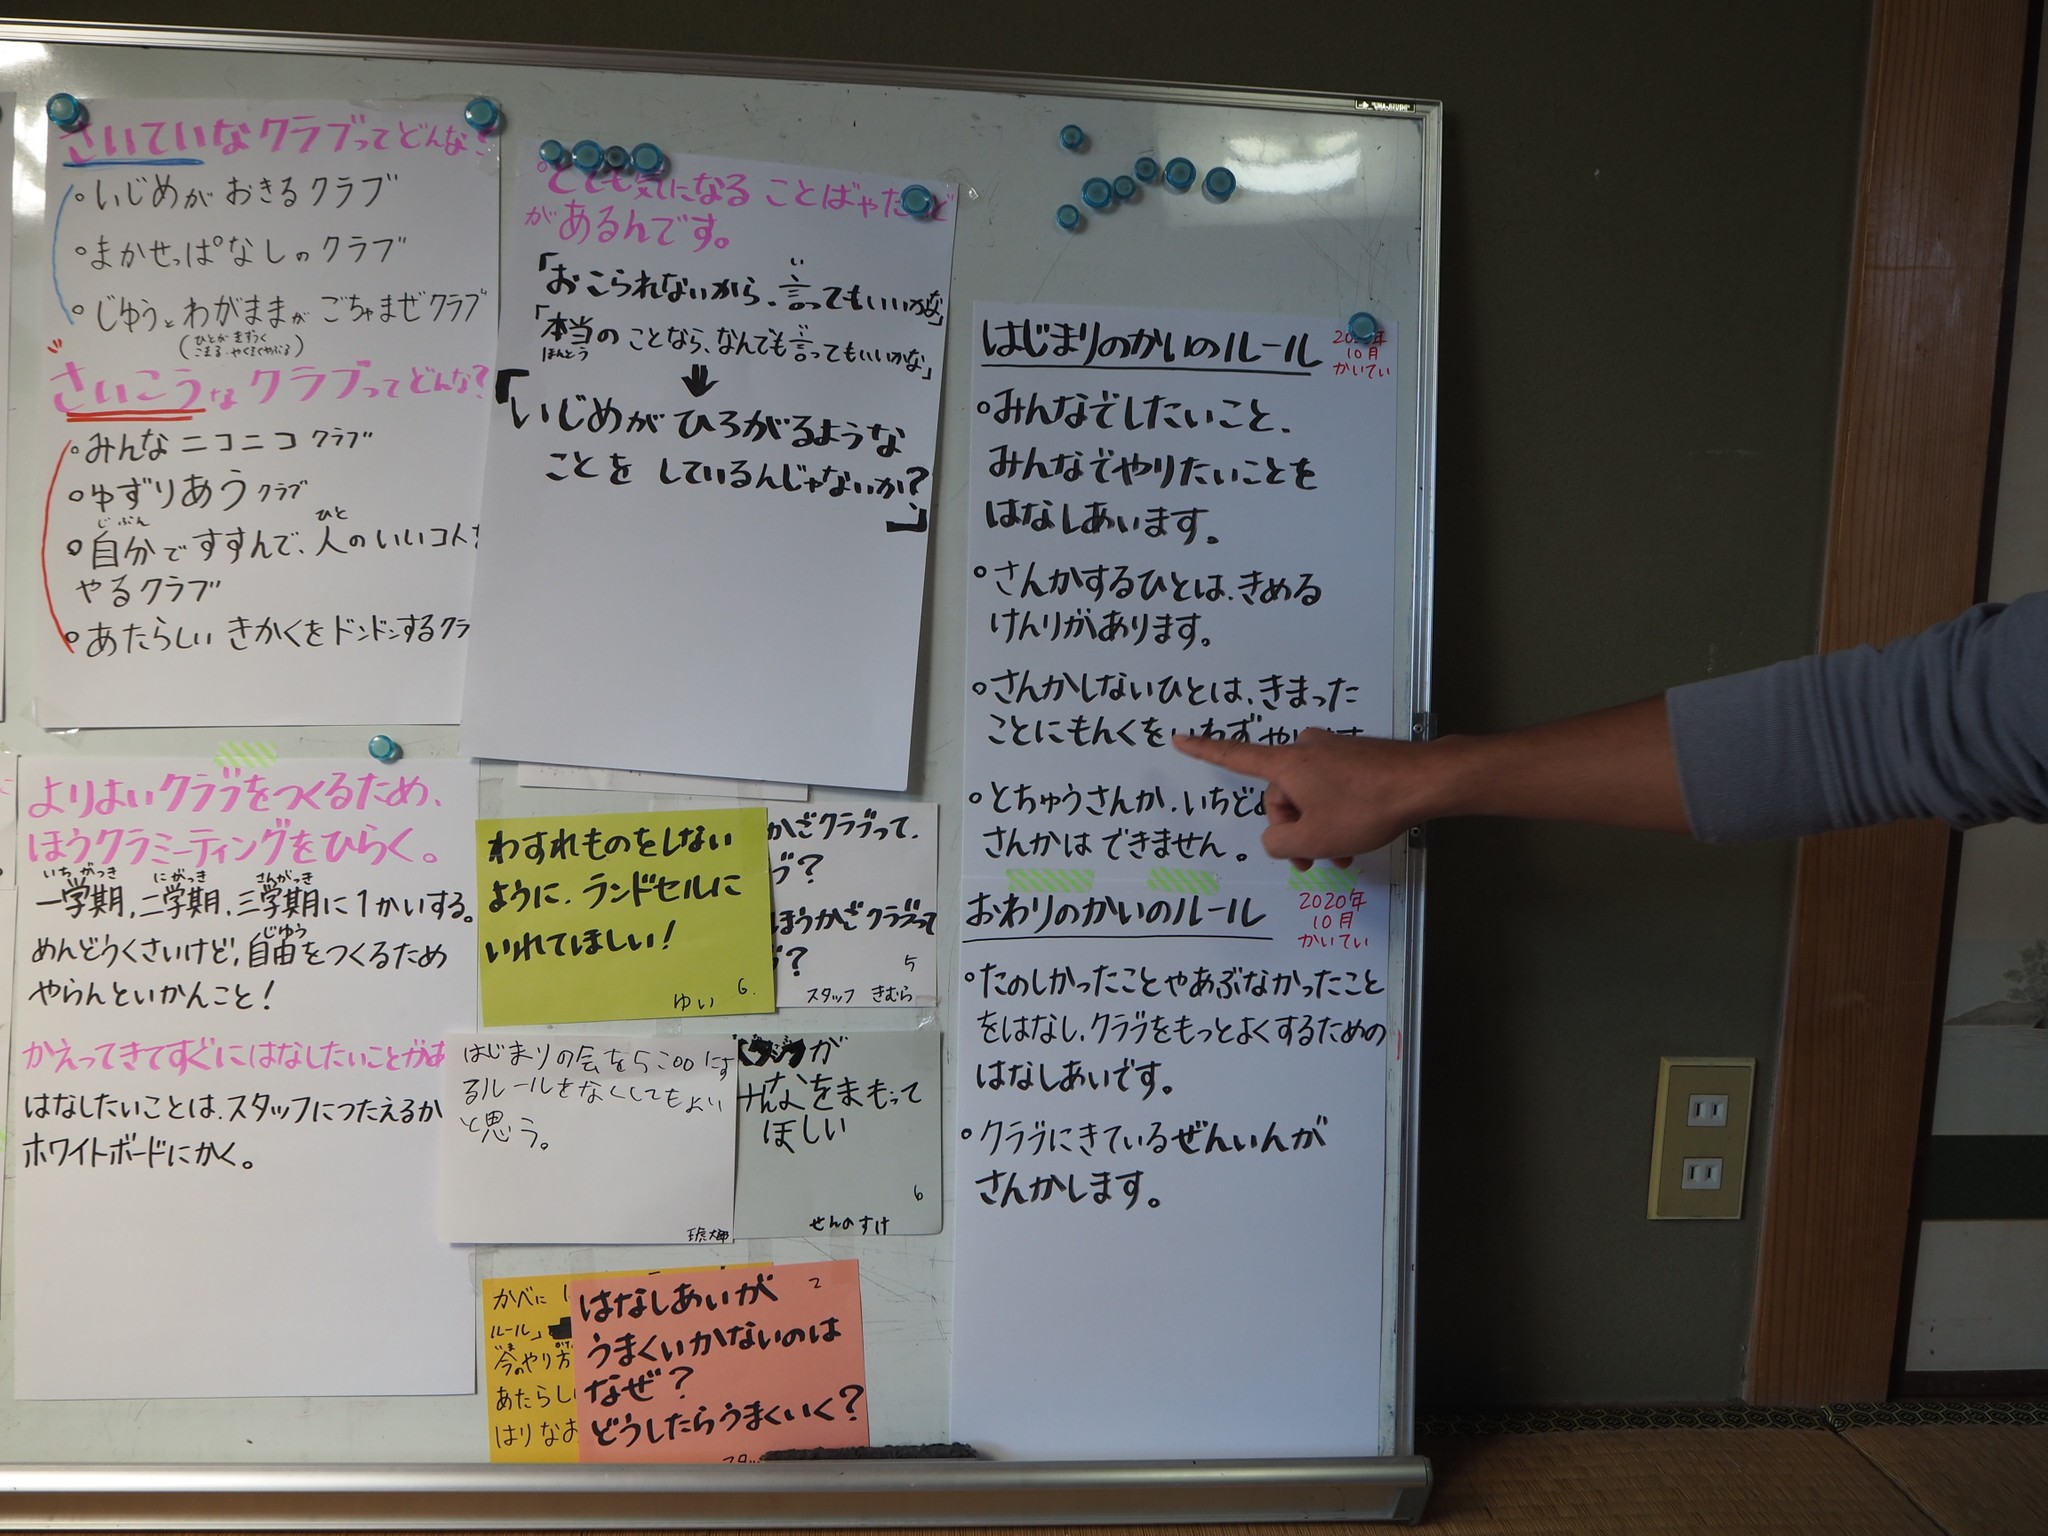 さいていなクラブってどんな?
・いじめがおきるクラブ
・まかせっぱなしのクラブ
・じゆうとわがままがごちゃまぜクラブ
(ひとがきずつく
こまる・やくそくやぶる)
さいこうなクラブってどんな?
・みんなニコニコクラブ
・ゆずりあうクラブ
じぶん ひと
・自分ですすんで、人のいいコトを
やるクラブ
・あたらしいきかくをドンドンするクラ
よりよいクラブをつくるため、
ほうクラミーティングをひらく。
いちがっき にがっき さんがっき
一学期,二学期,三学期に1かいする。
じゆう
めんどうくさいけど,自由をつくるため
やらんといかんこと!
かえってきてすぐにはなしたいことがあ
はなしたいことは、スタッフにつたえるか
ホワイトボードにかく。
・とても気になることばや
があるんです。
い
「おこられないから、言ってもいいかな」
い
「本当のことなら、なんでも言ってもいいかな」
ほんとう
「いじめがひろがるような
ことをしているんじゃないか?」
わすれものをしない
ように、ランドセルに
いれてほしい!
ゆい 6.
かごクラブって、
ブ?
ほうかごクラブって
?
5
スタッフ きむら
はじまりの会を5:00にす
るルールをなくしてもよい
と思う。
が
なをまもって
ほしい
6
せんのすけ
かべに
ルール」
いま
今のやり方
あたらし
はりなお
2
はなしあいが
うまくいかないのは
なぜ?
どうしたらうまくいく?
はじまりのかいのルール
年
10月
かいてい
・みんなでしたいこと、
みんなでやりたいことを
はなしあいます。
・さんかするひとは、きめる
けんりがあります。
・さんかしないひとは、きまった
ことにもんくをいわず
・とちゅうさんか、いちど
さんかはできません。
おわりのかいのルール
2020年
10月
かいてい
・たのしかったことやあぶなかったこと
をはなし、クラブをもっとよくするための
はなしあいです。
・クラブにきているぜんいんが
さんかします。